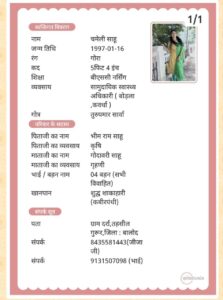 1/1
व्यक्तिगत विवरण
नाम चमेली साहू
जन्म तिथि 1997-01-16
रंग गोरा
कद 5फिट 4 इंच
शिक्षा बीएससी नर्सिंग
व्यवसाय सामुदायिक स्वास्थ्य
अधिकारी ( बोड़ला
,कवर्धा )
गोत्र तुरुपमार सार्वा
परिवार के सदस्य
पिताजी का नाम भीम राम साहू
पिताजी का व्यवसाय कृषि
माताजी का नाम गोदावरी साहू
माताजी का व्यवसाय गृहणी
भाई / बहन नाम 04 बहन (सभी
विवाहित)
खानपान शुद्ध शाकाहारी
(कबीरपंथी)
संपर्क सूत्र
पता ग्राम दर्रा,तहसील
गुरूर,जिला : बालोद
संपर्क 8435581443(जीजा
जी)
संपर्क 9131507098 (भाई)